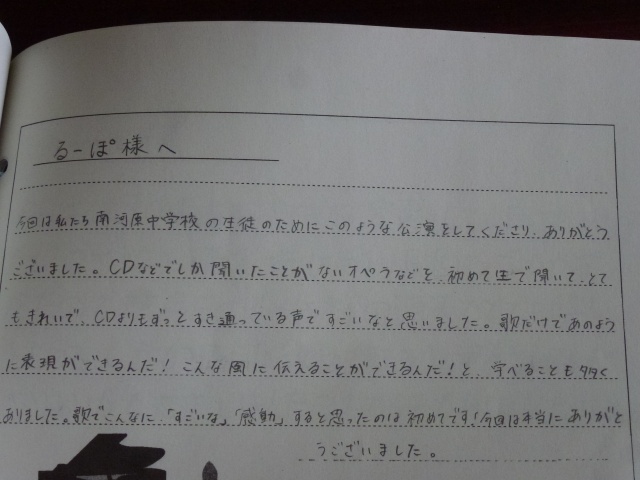 るーぽ様へ
今回は私たち南河原中学校の生徒のためにこのような公演をしてくださり、ありがとう
ございました。CDなどでしか聞いたことがないオペラなどを、初めて生で聞いて、とて
もきれいで、CDよりもずっとすき通っている声ですごいなと思いました。歌だけであのよう
に表現ができるんだ!こんな風に伝えることができるんだ!と、学べることも多く
ありました。歌でこんなに「すごいな」「感動」すると思ったのは初めてです!今回は本当にありがと
うございました。